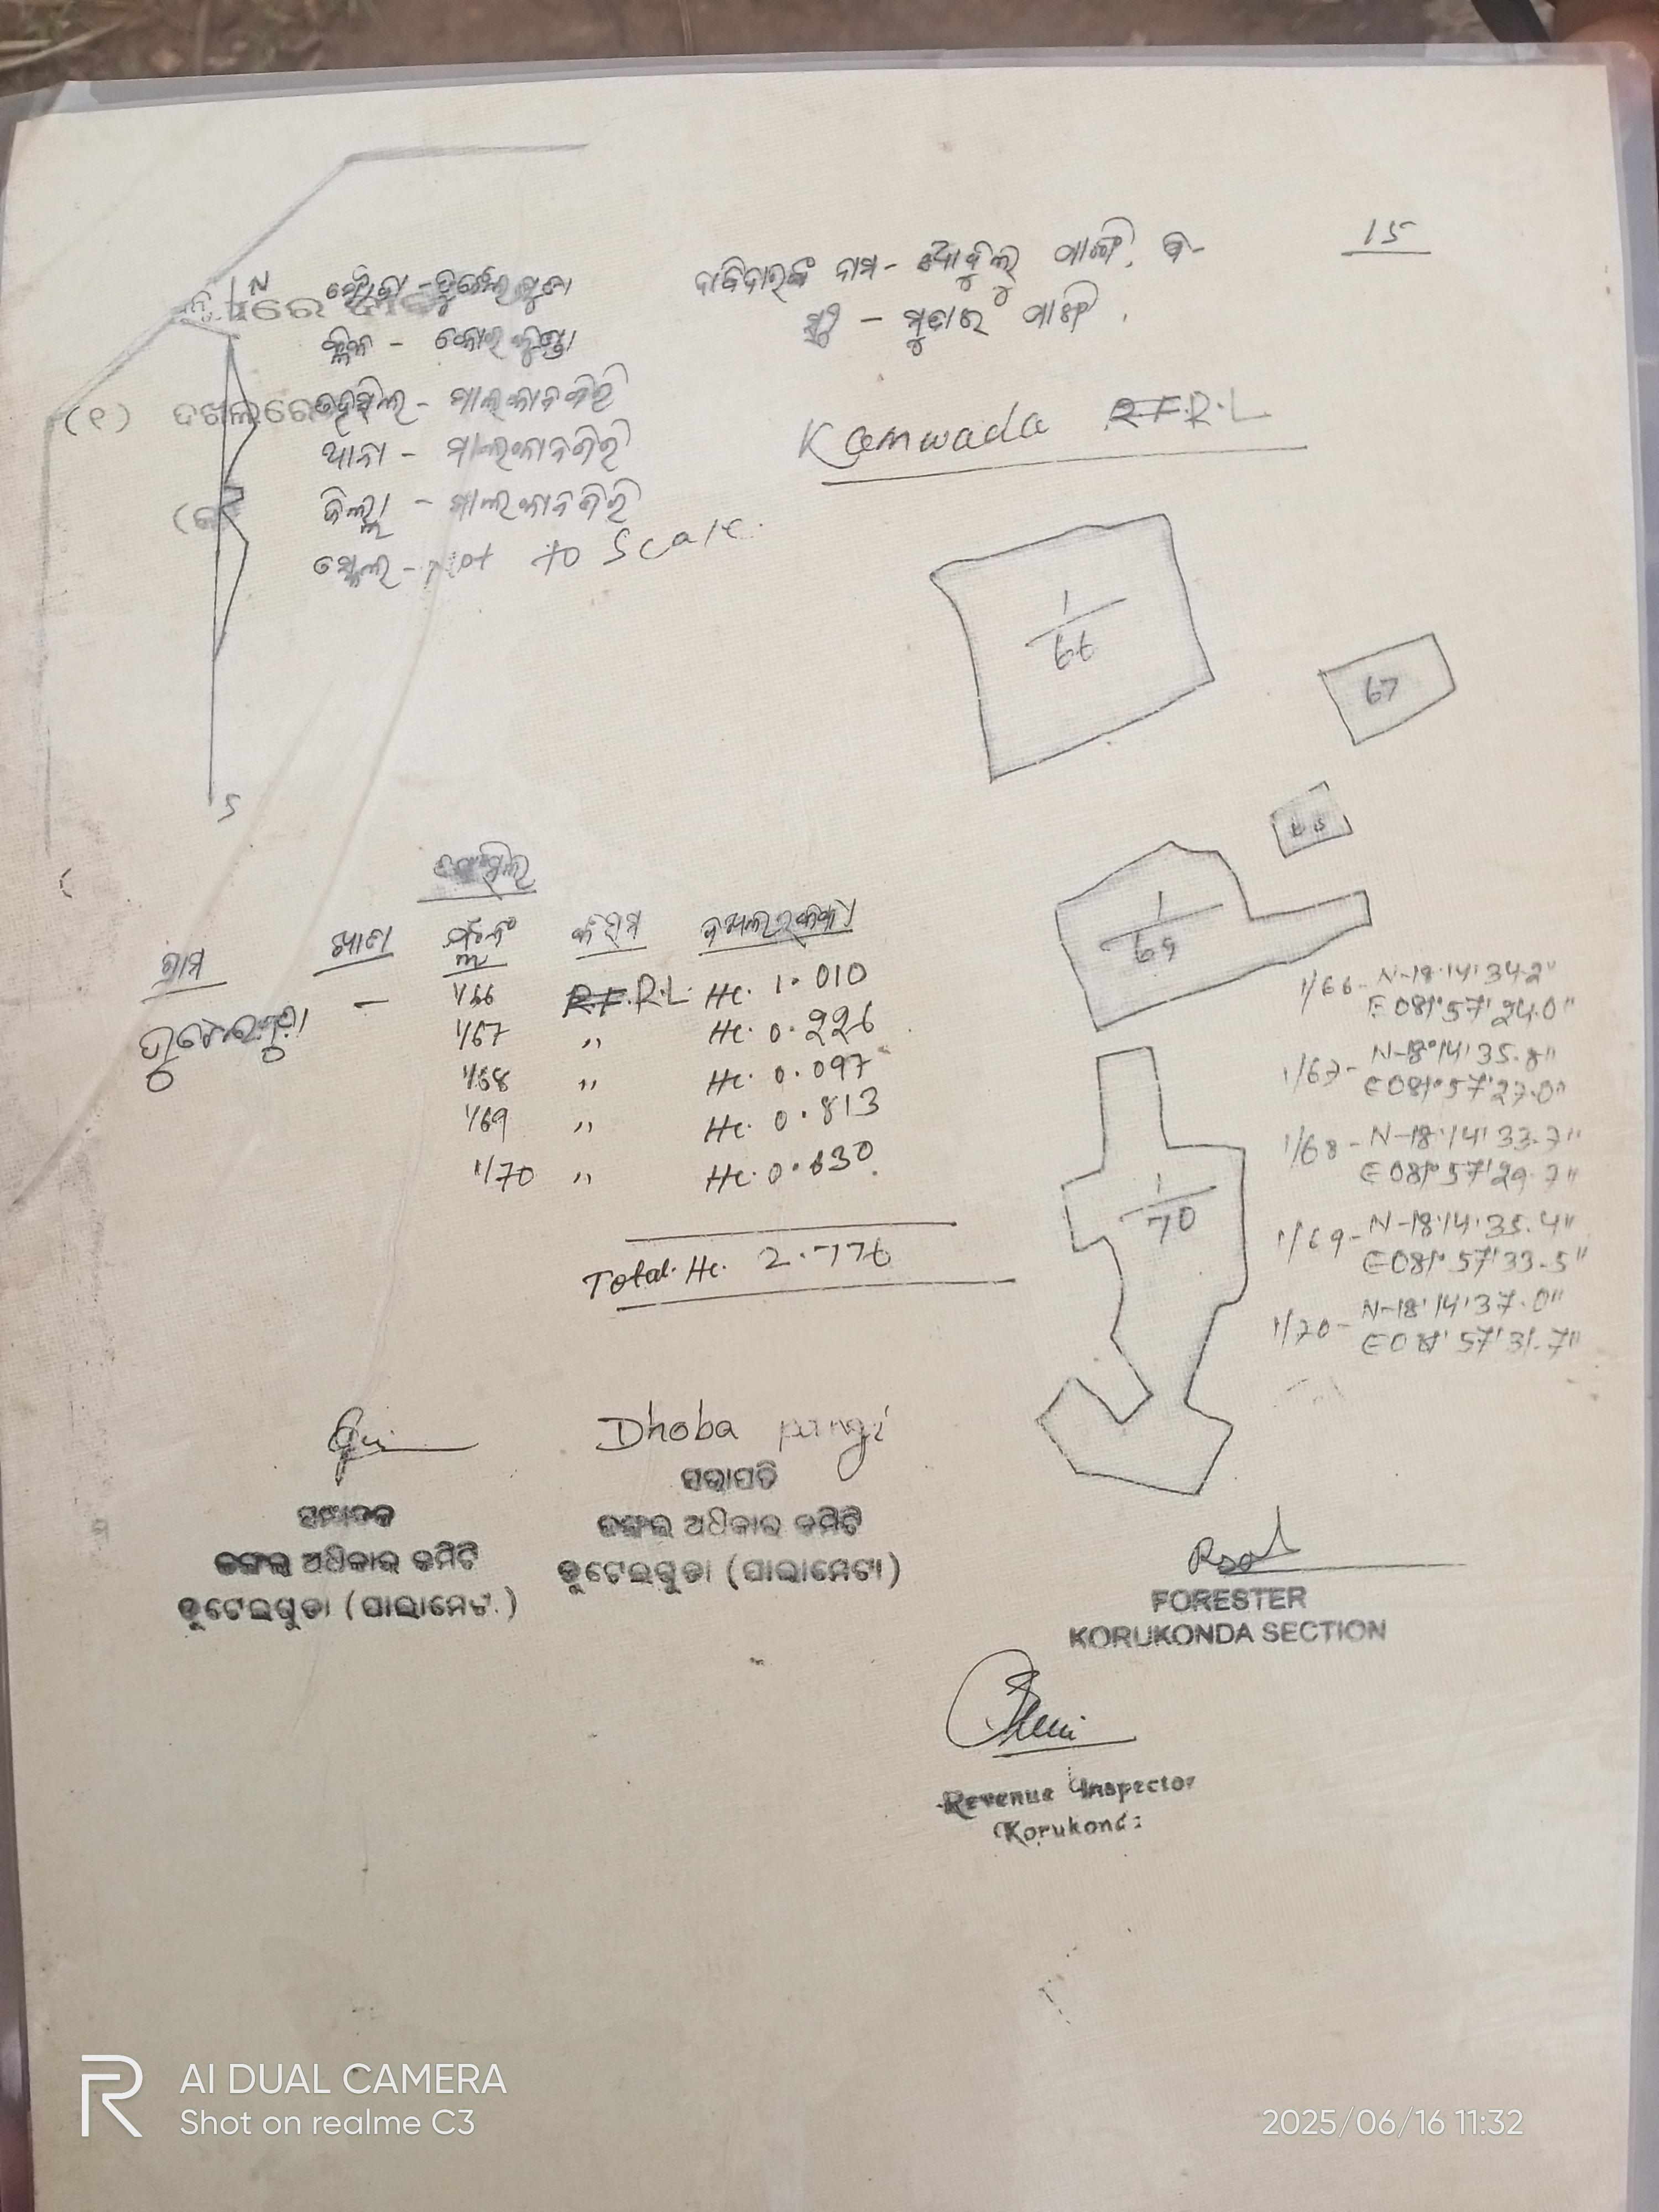 15
ମୌଜା - ଡୁଟେଲଗୁଡା
ବ୍ଲକ - କୋରକୁଣ୍ଡା
ତହସିଲ - ମାଲକାନଗିରି
ଥାନା - ମାଲକାନଗିରି
ଜିଲ୍ଲା - ମାଲକାନଗିରି
ସ୍କେଲ - Not to Scale
N
S
(୧) ଦଖଲରେ
(କ)
ଦାବିଦାରଙ୍କ ନାମ -
Kamwada R.F. R.L
1/66
67
68
1/69
1/70
ଗ୍ରାମ ଖାତା ପ୍ଲଟ ନଂ କିସମ ଦଖଲ ରକବା
ଡୁଟେଲଗୁଡା - 1/66 R.F. R.L. Hc. 1.010
1/67 ,, Hc. 0.226
1/68 ,, Hc. 0.097
1/69 ,, Hc. 0.813
1/70 ,, Hc. 0.630
Total. Hc. 2.776
1/66- N-18°14'34.2"
E 081°57'24.0"
1/67- N-18°14'35.8"
E 081°57'27.0"
1/68- N-18°14'33.7"
E 081°57'29.7"
1/69- N-18°14'35.4"
E 081°57'33.5"
1/70- N-18°14'37.0"
E 081°57'31.7"
Dhoba pangi
ସଭାପତି
ଜଙ୍ଗଲ ଅଧିକାର କମିଟି
ଡୁଟେଲଗୁଡା (ପାଲାମେଟା)
ସମ୍ପାଦକ
ଜଙ୍ଗଲ ଅଧିକାର କମିଟି
ଡୁଟେଲଗୁଡା (ପାଲାମେଟା)
FORESTER
KORUKONDA SECTION
Revenue Inspector
Korukonda
AI DUAL CAMERA
Shot on realme C3
2025/06/16 11:32